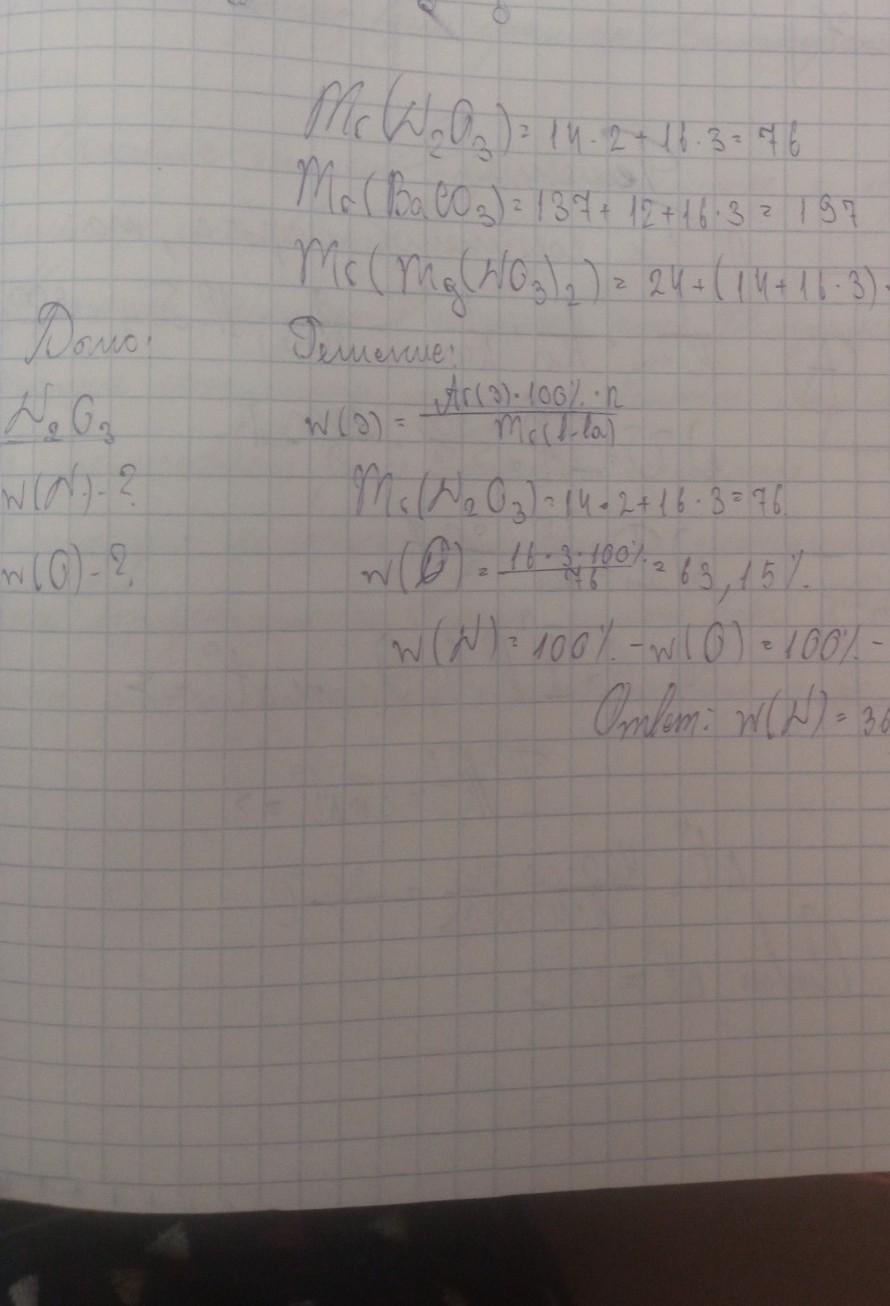 Mr(N₂O₃) = 14 · 2 + 16 · 3 = 76
Mr(BaCO₃) = 137 + 12 + 16 · 3 = 197
Mr(Mg(NO₃)₂) = 24 + (14 + 16 · 3) ·
Дано: Решение:
N₂O₃ w(э) = Ar(э) · 100% · n / Mr(в-ва)
w(N) - ? Mr(N₂O₃) = 14 · 2 + 16 · 3 = 76
w(O) - ? w(O) = 16 · 3 · 100% / 76 = 63,15%
w(N) = 100% - w(O) = 100% -
Ответ: w(N) = 36